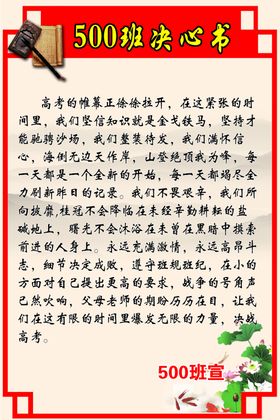 500班决心书
高考的帷幕正徐徐拉开，在这紧张的时
间里，我们坚信知识就是金戈铁马，坚持才
能驰骋沙场，我们整装待发，我们满怀信
心，海倒无边天作岸，山登绝顶我为峰，每
一天都是一个全新的开始，每一天都竭尽全
力刷新昨日的记录。我们不畏艰辛，我们所
向披靡，桂冠不会降临在未经辛勤耕耘的盐
碱地上，曙光不会沐浴在未曾在黑暗中摸索
前进的人身上。永远充满激情，永远高昂斗
志，细节决定成败，遵守班规班纪，在小的
方面对自己提出更高的要求，战争的号角声
已然吹响，父母老师的期盼历历在目，让我
们在这有限的时间里爆发无限的力量，决战
高考。
500班宣